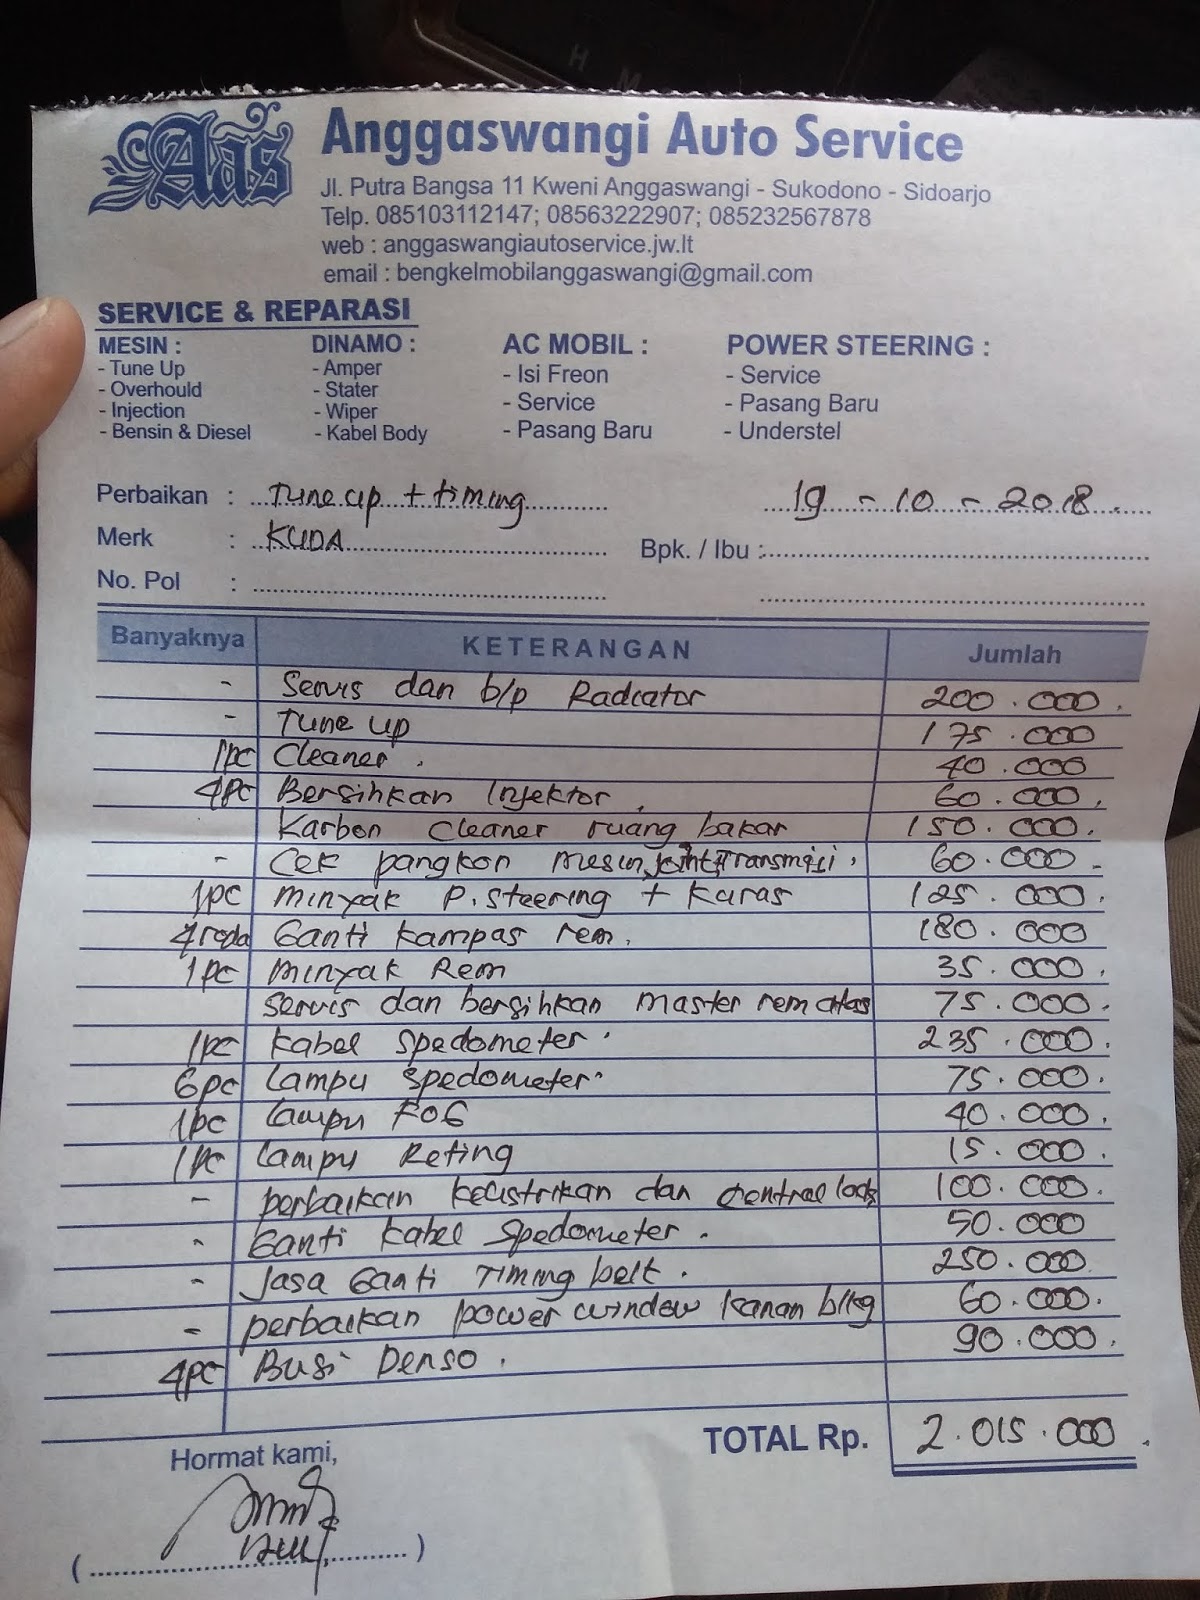 Aas
Anggaswangi Auto Service
Jl. Putra Bangsa 11 Kweni Anggaswangi - Sukodono - Sidoarjo
Telp. 085103112147; 08563222907; 085232567878
web : anggaswangiautoservice.jw.lt
email : bengkelmobilanggaswangi@gmail.com
SERVICE & REPARASI
MESIN :
- Tune Up
- Overhould
- Injection
- Bensin & Diesel
DINAMO :
- Amper
- Stater
- Wiper
- Kabel Body
AC MOBIL :
- Isi Freon
- Service
- Pasang Baru
POWER STEERING :
- Service
- Pasang Baru
- Understel
Perbaikan : Tune up + timing 19 - 10 - 2018
Merk : KUDA Bpk. / Ibu :
No. Pol :
Banyaknya KETERANGAN Jumlah
- Servis dan b/p Radiator 200.000
- Tune up 175.000
1pc Cleaner 40.000
4pc Bersihkan Injektor 60.000
Karbon cleaner ruang bakar 150.000
- Cek pangkon mesin, joint, Transmisi 60.000
1pc Minyak P. Steering + Kuras 125.000
4 roda Ganti Kampas rem 180.000
1pc Minyak Rem 35.000
Servis dan bersihkan master rem atas 75.000
1pc Kabel Spedometer 235.000
6pc Lampu Spedometer 75.000
1pc Lampu FOG 40.000
1pc Lampu Reting 15.000
- perbaikan kelistrikan dan Central lock 100.000
- Ganti Kabel Spedometer 50.000
- Jasa Ganti Timing belt 250.000
- perbaikan power window kanan blkg 60.000
4pc Busi Denso 90.000
TOTAL Rp. 2.015.000
Hormat kami,
(....................)